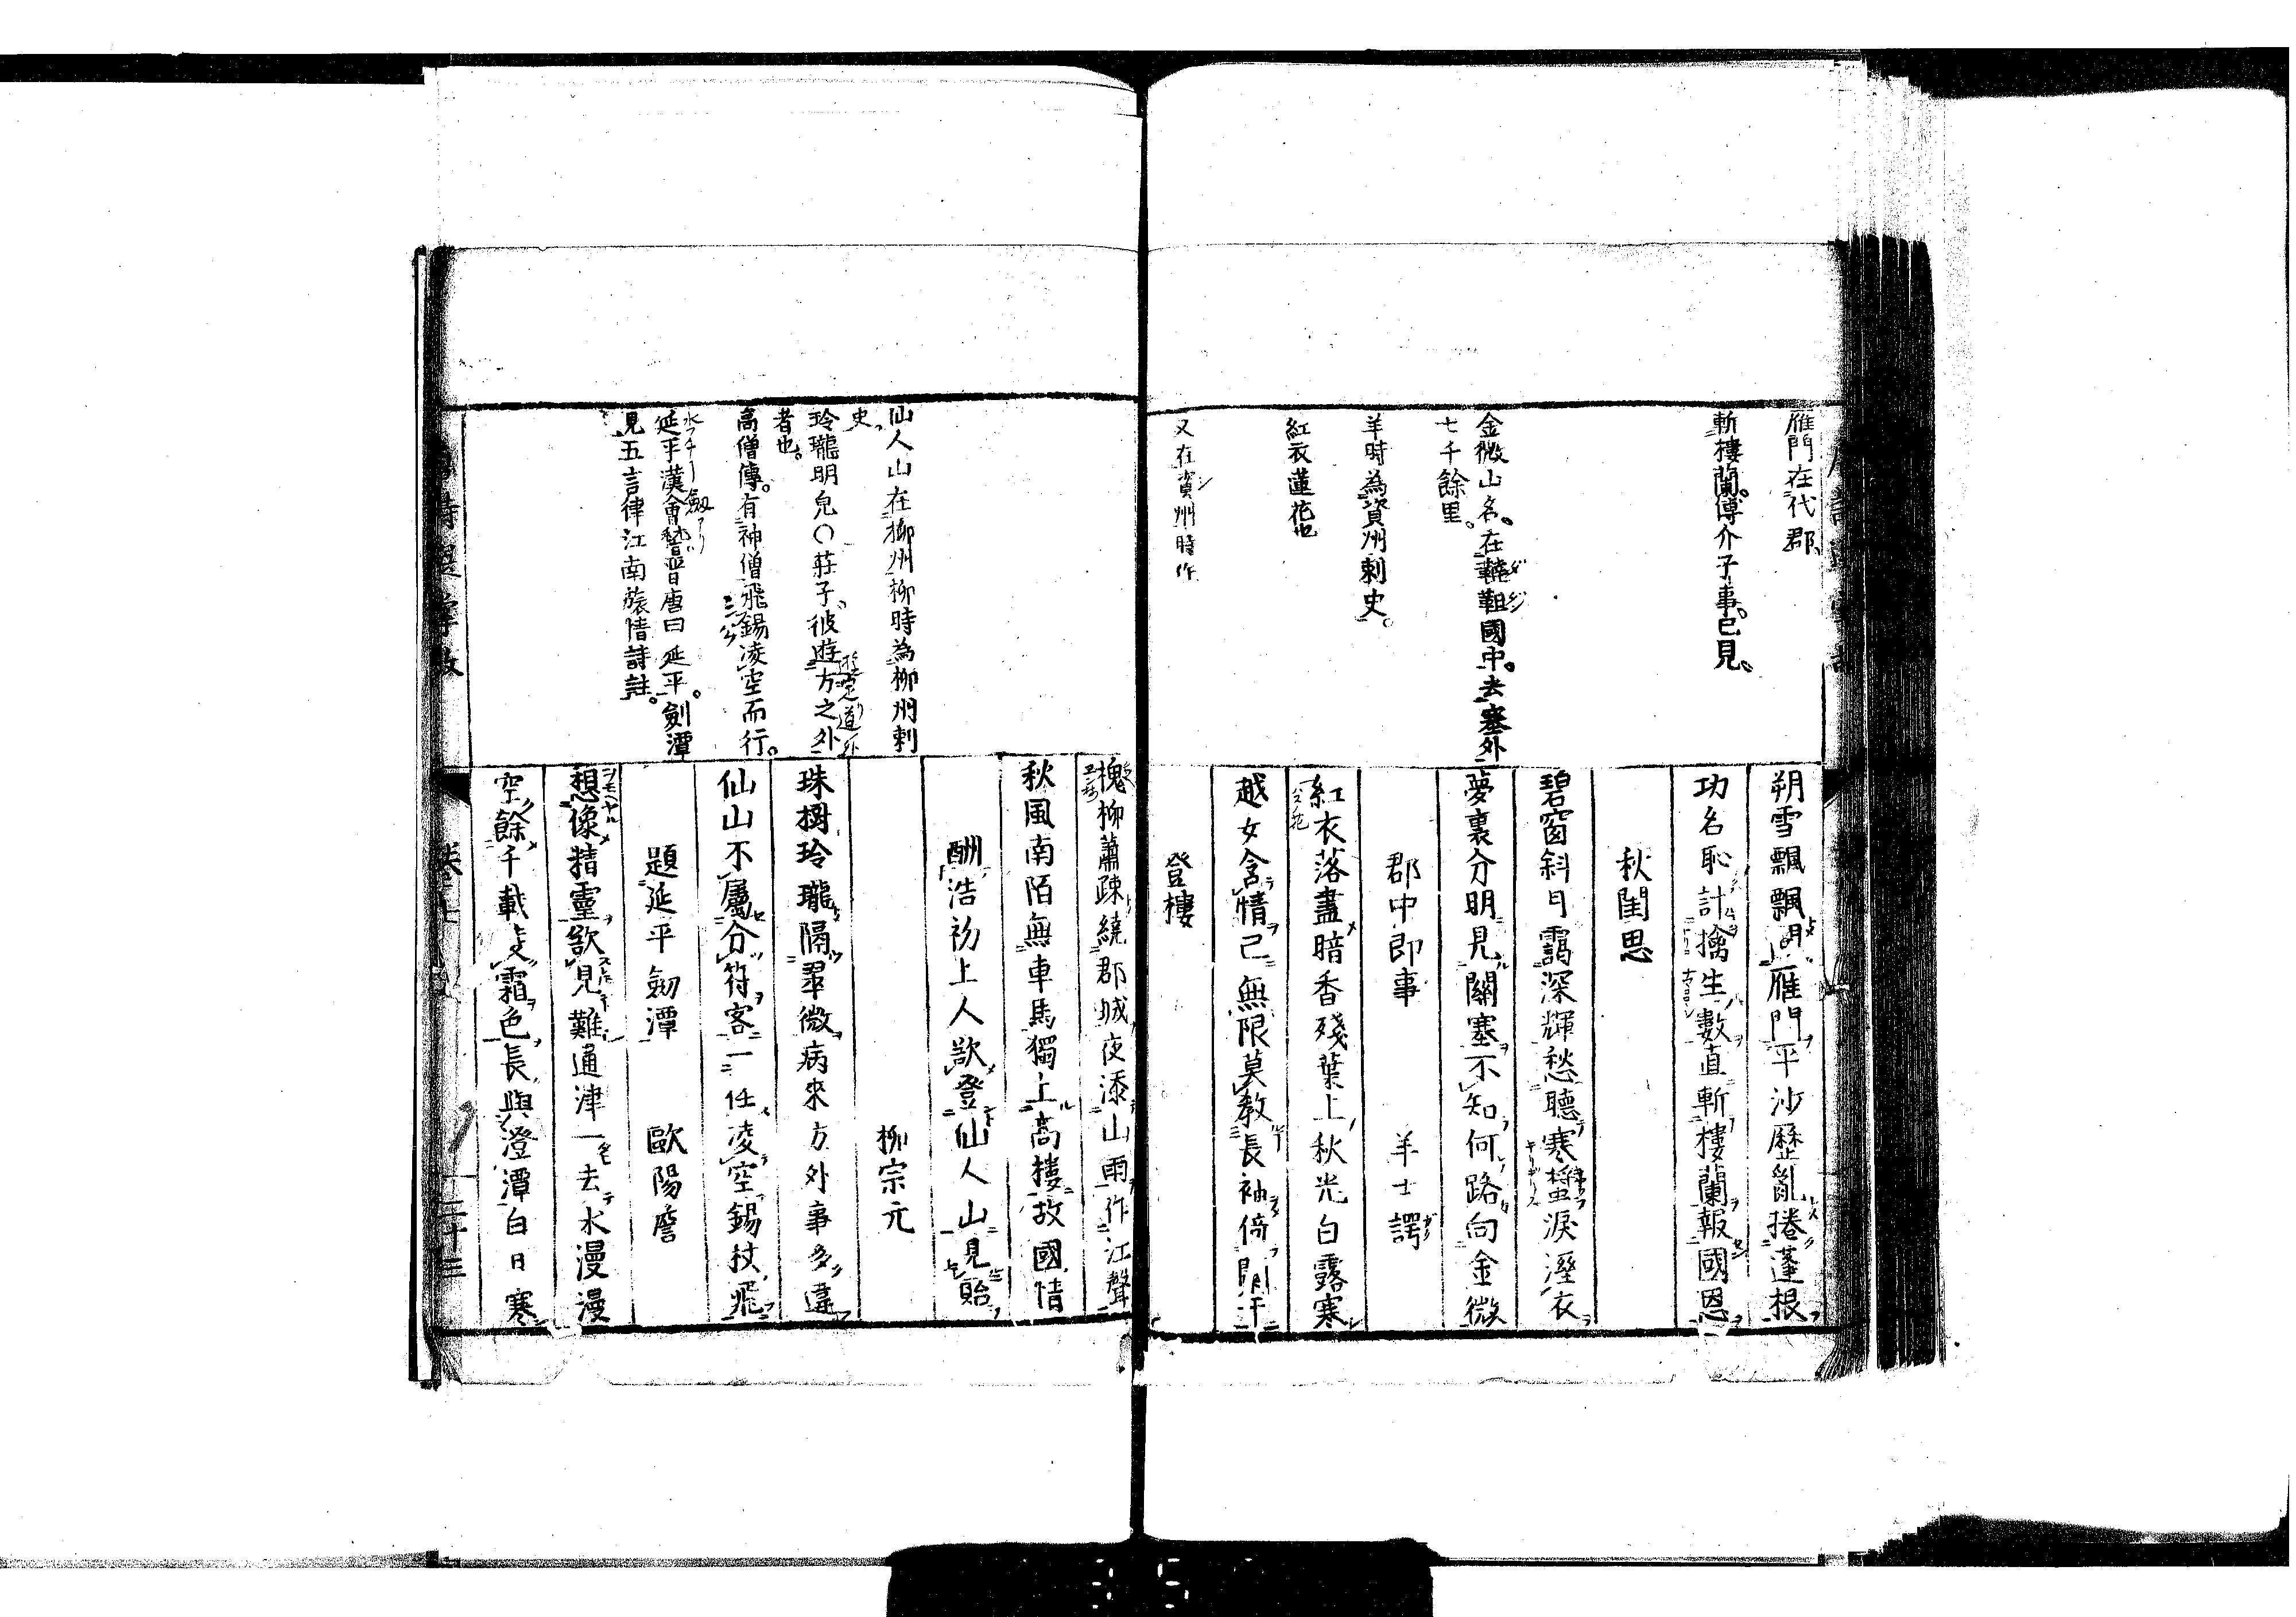 雁門在代郡
斬樓蘭傅介子事已見
金微山名在韃靼國中去塞外
七千餘里
羊時為資州刺史
紅衣蓮花也
又在資州時作
朔雪飄飄開雁門平沙歷亂捲蓬根
功名恥計擒生數直斬樓蘭報國恩
秋閨思
碧窗斜月靄深輝愁聽寒螿淚溼衣
夢裏分明見關塞不知何路向金微
郡中即事 羊士諤
紅衣落盡暗香殘葉上秋光白露寒
越女含情已無限莫教長袖倚闌干
登樓
仙人山在柳州柳時為柳州刺
史
玲瓏明皃〇莊子彼遊方之外
者也
高僧傳有神僧飛錫凌空而行
延平漢會稽晋唐曰延平劍潭
見五言律江南旅情詩註
槐柳蕭疎繞郡城夜添山雨作江聲
秋風南陌無車馬獨上高樓故國情
酬浩初上人欲登仙人山見貽
柳宗元
珠樹玲瓏隔翠微病來方外事多違
仙山不屬分符客一任凌空錫杖飛
題延平劒潭 歐陽詹
想像精靈欲見難通津一去水漫漫
空餘千載凌霜色長與澄潭白日寒
二十三